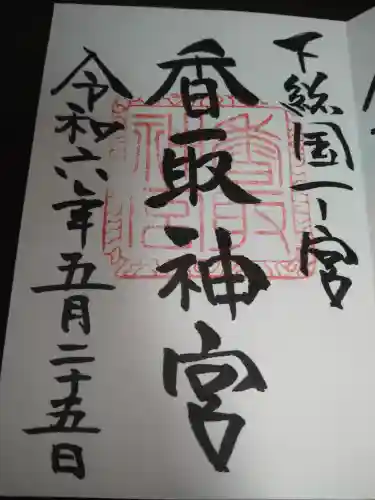 下総国一ノ宮
香取神宮
令和六年五月二十五日
香取神宮